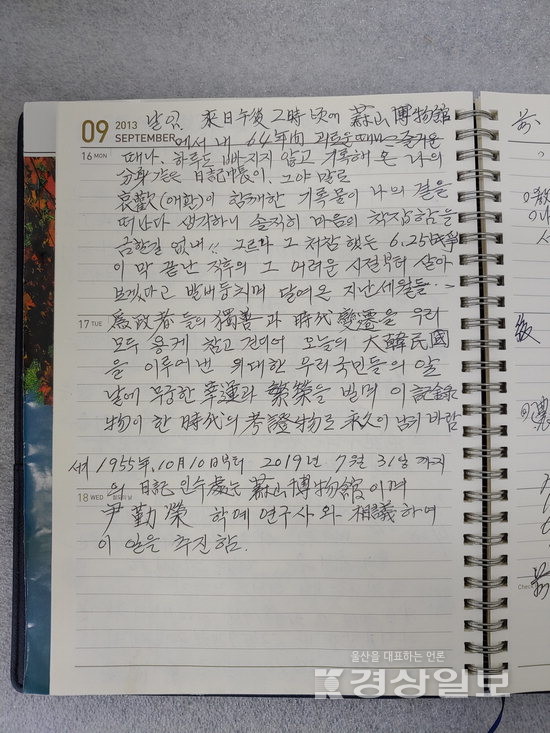 09 2013 SEPTEMBER
날임. 來日午後 2時 頃에 蔚山博物館
에서 내 64年間 괴로운 때나 즐거운
16 MON
때나, 하루도 빠지지 않고 기록해 온 나의
分身 같은 日記帳이, 그야 말로
哀歡(애환)이 함께한 기록물이 나의 곁을
떠난다 생각하니 솔직히 마음의 착잡함을
금할길 없내!! 그러나 그 처참 했든 6.25 战爭
이 막 끝난 직후의 그 어려운 시절부터 살아
보겠다고 발버둥치며 달여온 지난세월들…
17 TUE
爲政者들의 獨善과 時代變遷을 우리
모두 용케 참고 견디어 오늘의 大韓民國
을 이루어낸 위대한 우리국민들의 앞
날에 무궁한 幸運과 繁榮을 빌며 이 記錄
物이 한 時代의 考證物로 永久이 남기 바람
1955年, 10月10日부터 2019년 7월 31日 까지
18 WED
의 日記 인수處는 蔚山博物館이며
尹勤榮 학예연구사와 相議하여
이 일을 추진함.
Check
울산을 대표하는 언론
경상일보